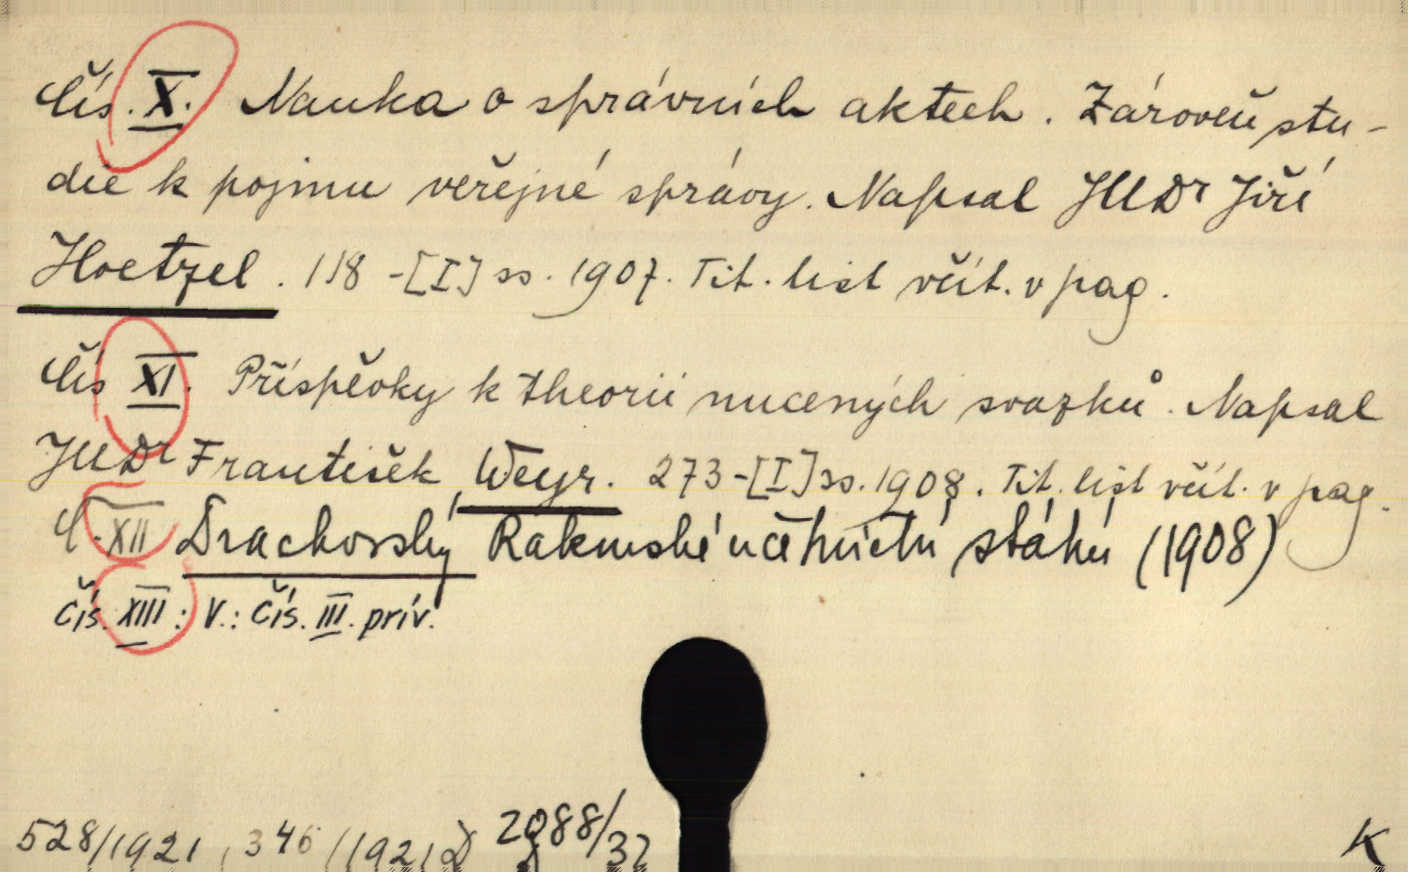 Čís. X. Nauka o správních aktech. Zároveň stu-
die k pojmu veřejné správy. Napsal JUDr Jiří
Hoetzel. 118 -[I] ss. 1907. Tit. list včít. v pag.
Čís XI. Příspěvky k theorii nucených svazků. Napsal
JUDr František Weyr. 273-[I] ss. 1908. Tit. list včít. v pag.
Č. XII Drachovský Rakouské účetnictví (1908)
Čís. XIII: V.: Čís. III. prív.
528/1921, 346/1921 2088/32 K